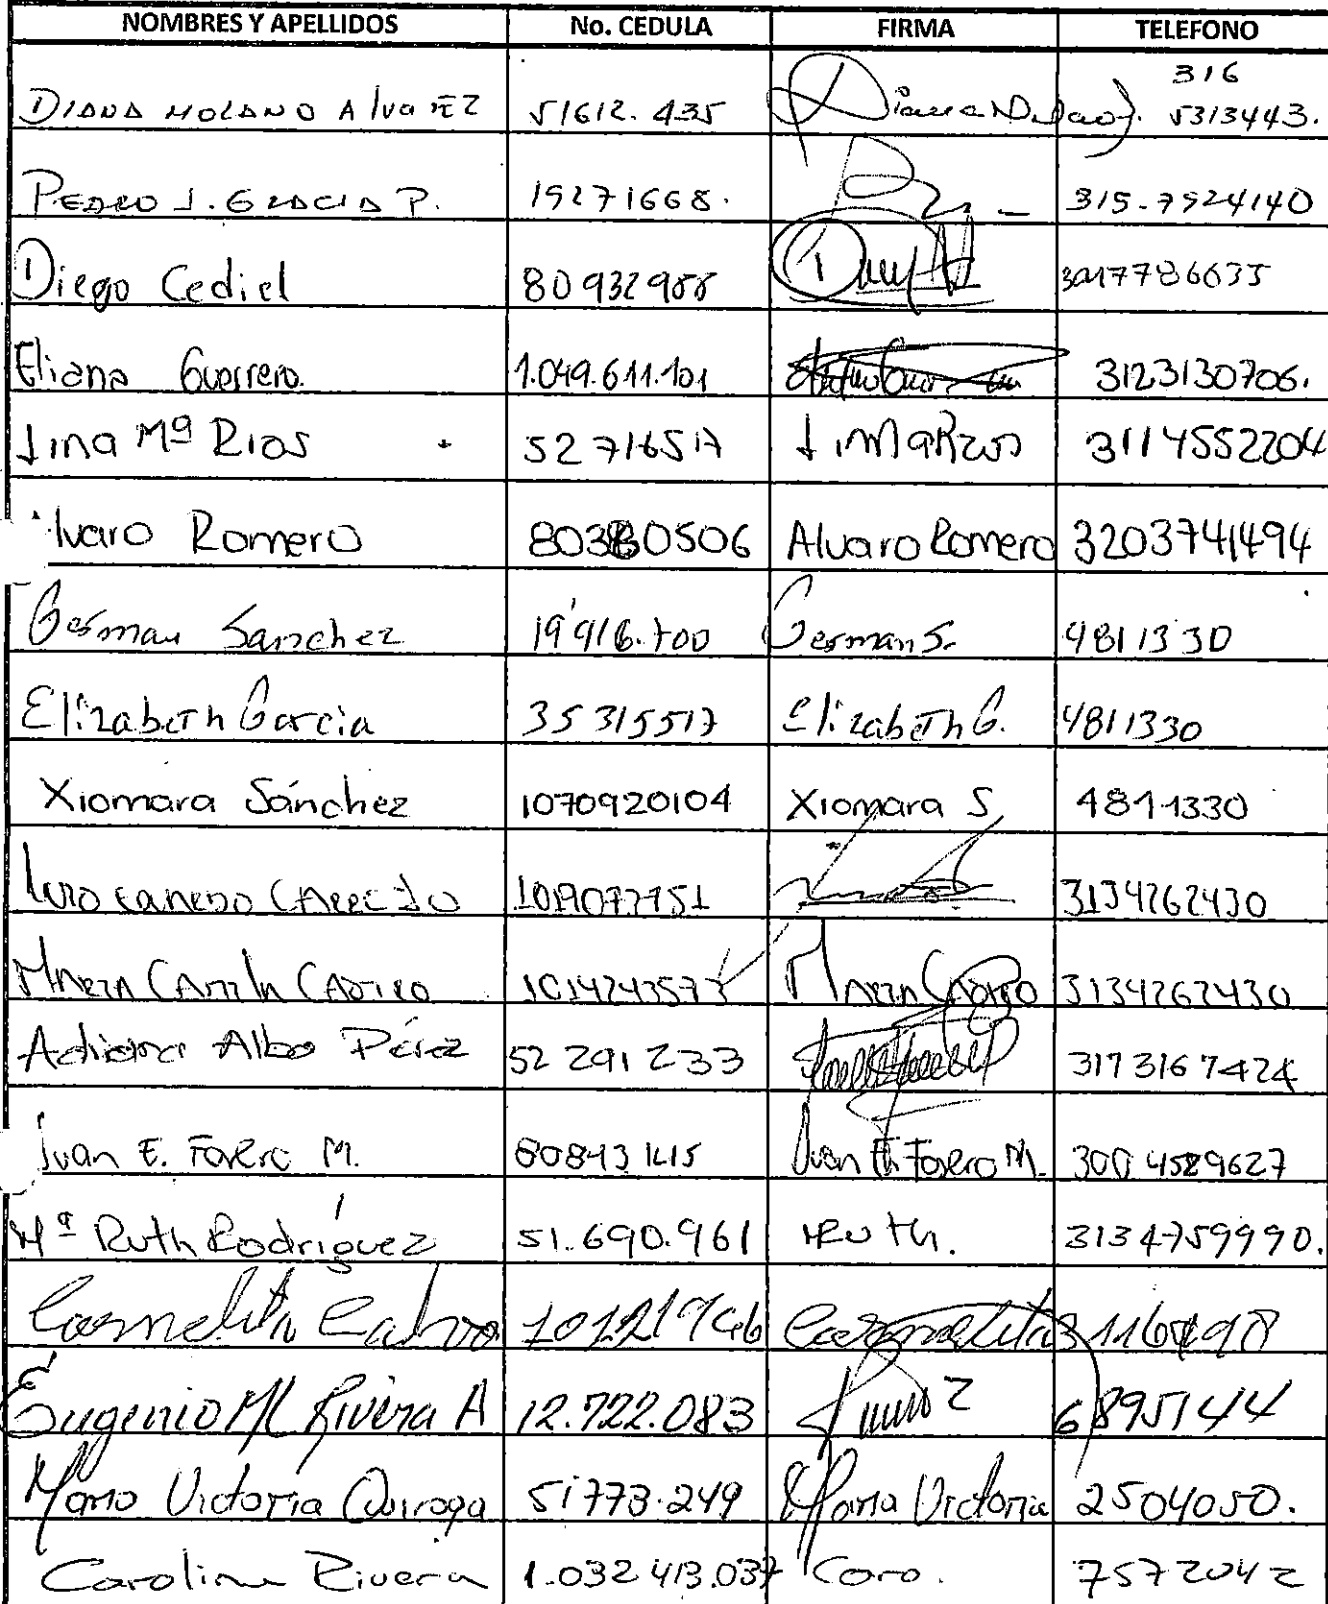 NOMBRES Y APELLIDOS No. CEDULA FIRMA TELEFONO
316
DIANA MOLANO Alvarez 51612.435 5313443.
PEDRO J. GRACIA P. 19271668. 315-7924140
Diego Cediel 80932988
Eliana Guerrero. 1.049.611.101 3123130706.
Lina Mª Rios 52716517 LinMaRios 3114552204
lvaro Romero 80380506 Alvaro Romero 3203741494
German Sanchez 19'416.700 German S. 4811330
Elizabeth Garcia 35315517 Elizabeth G. 4811330
Xiomara Sánchez 1070920104 Xiomara S 481-1330
1019077751 3134262430
MARIA CAMILA CASTRO 1014243573 MARIA CASTRO 3134262430
Adriana Alba Pérez 52 291 233 317 316 7424
Juan E. Forero M. 80843 1415 Juan E. Forero M. 300 4529627
Mª Ruth Rodríguez 51.690.961 MRuth. 3134759990.
Carmelita Carmelita
Eugenio M Rivera A 12.722.083 6895144
Maria Victoria Quiroga 51773.249 Maria Victoria 2504050.
Carolina Rivera 1.032 413.037 Caro. 7572042